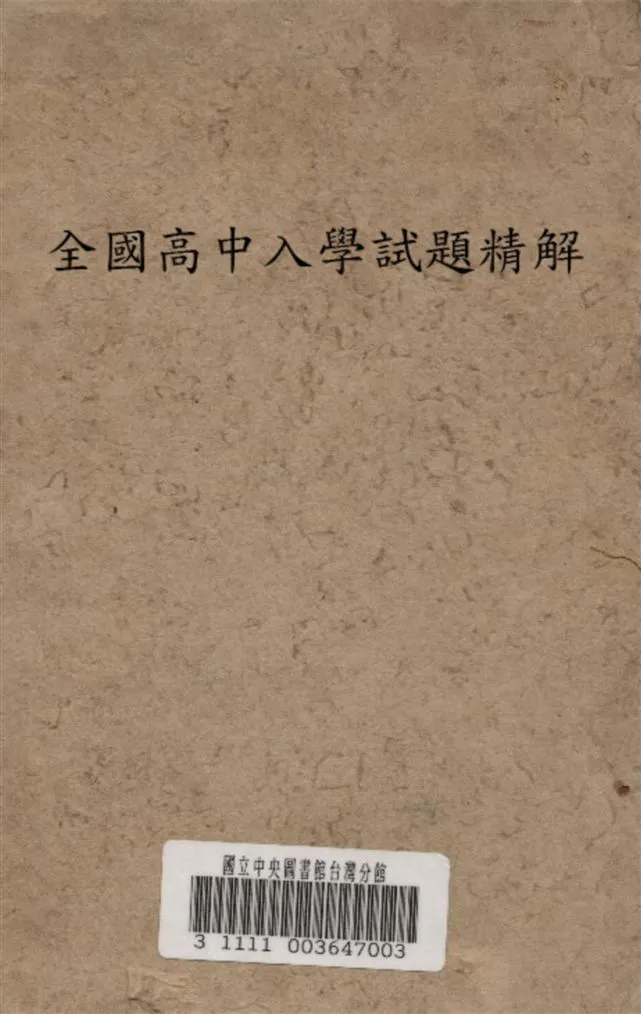 全國高中入學試題精解
國立中央圖書館台灣分館
3 1111 003647003